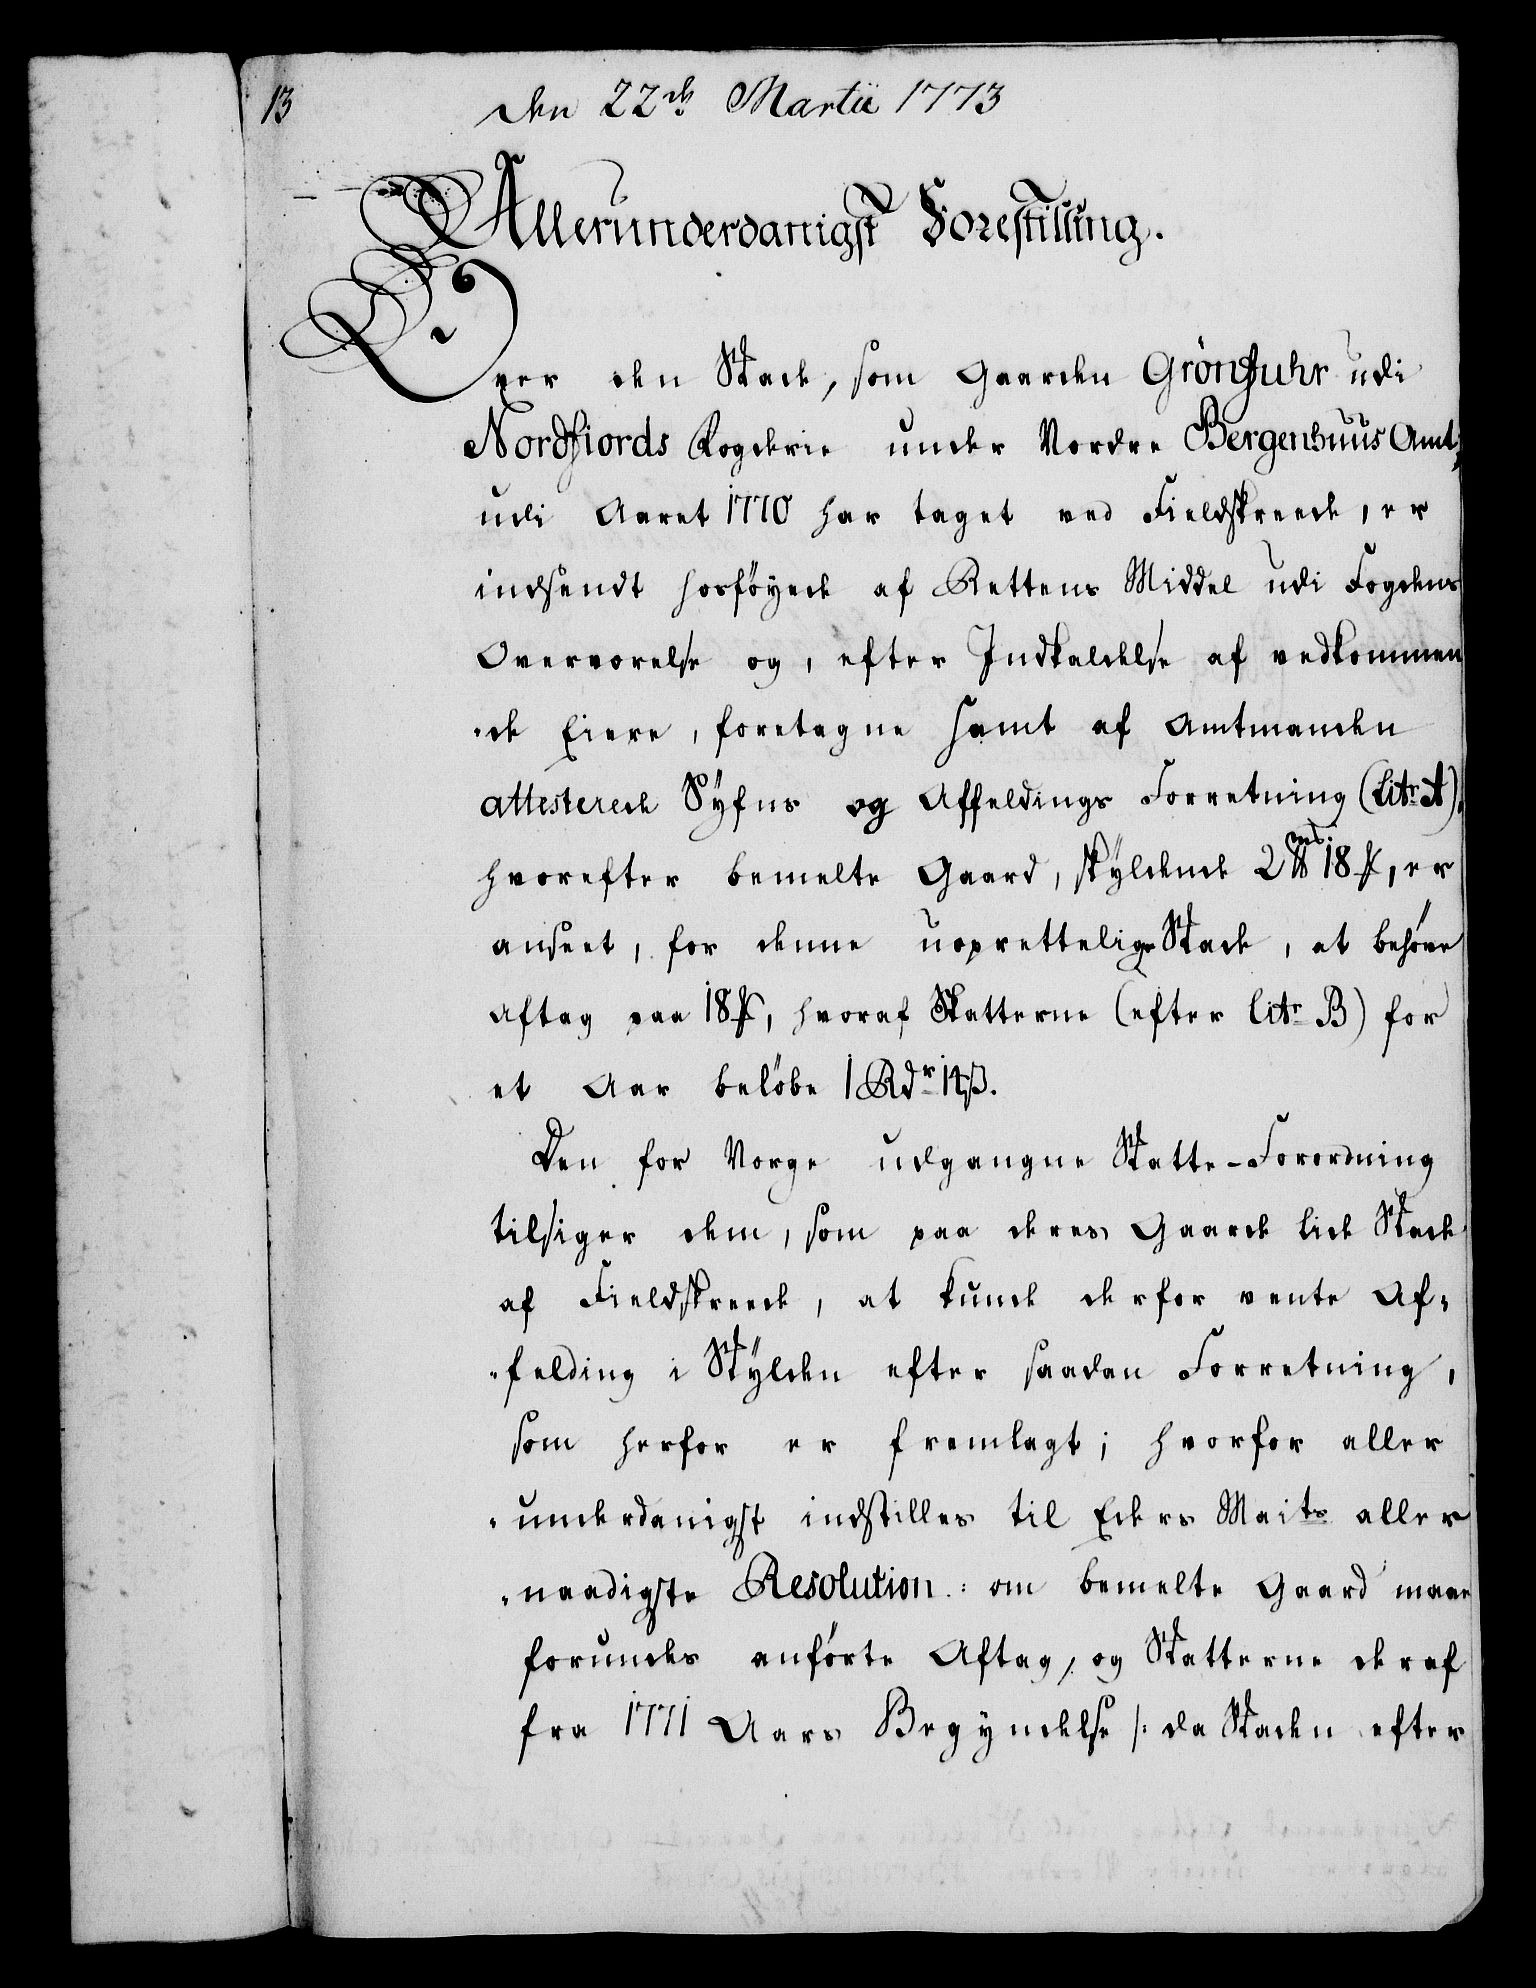 13
Den 22de Martii 1773
Allerunderdanigst Forestilling.
Over den Skade, som Gaarden Grönfuhr udi
Nordfiords Fogderie under Nordre Bergenhuus Amt,
udi Aaret 1770 har taget ved Fieldskreede, er
indsendt hosföyede af Rettens Middel udi Fogdens
Overværelse og, efter Indkaldelse af vedkommen
-de Eiere, foretagne samt af Amtmanden
attesterede Syfns og Affeldings Forretning (Litr. A).
hvorefter bemelte Gaard, skyldende 2 18, er
anseet, for denne uoprettelige Skade, at behöve
Aftag paa 18, hvoraf Skatterne (efter Litr B) for
et Aar belöbe 1 Rdr 14 ß.
Den for Norge udgangne Skatte-Forordning
tilsiger dem, som paa deres Gaarde lide Skade
af Fieldskreede, at kunde derfor vente Af-
-felding i Skylden efter saadan Forretning,
som herfor er fremlagt; hvorfor aller
-underdanigst indstilles til Eders Maits aller
-naadigste Resolution: om bemelte Gaard maae
forundes anförte Aftag, og Skatterne deraf
fra 1771 Aars Begyndelse /: da Skaden efter